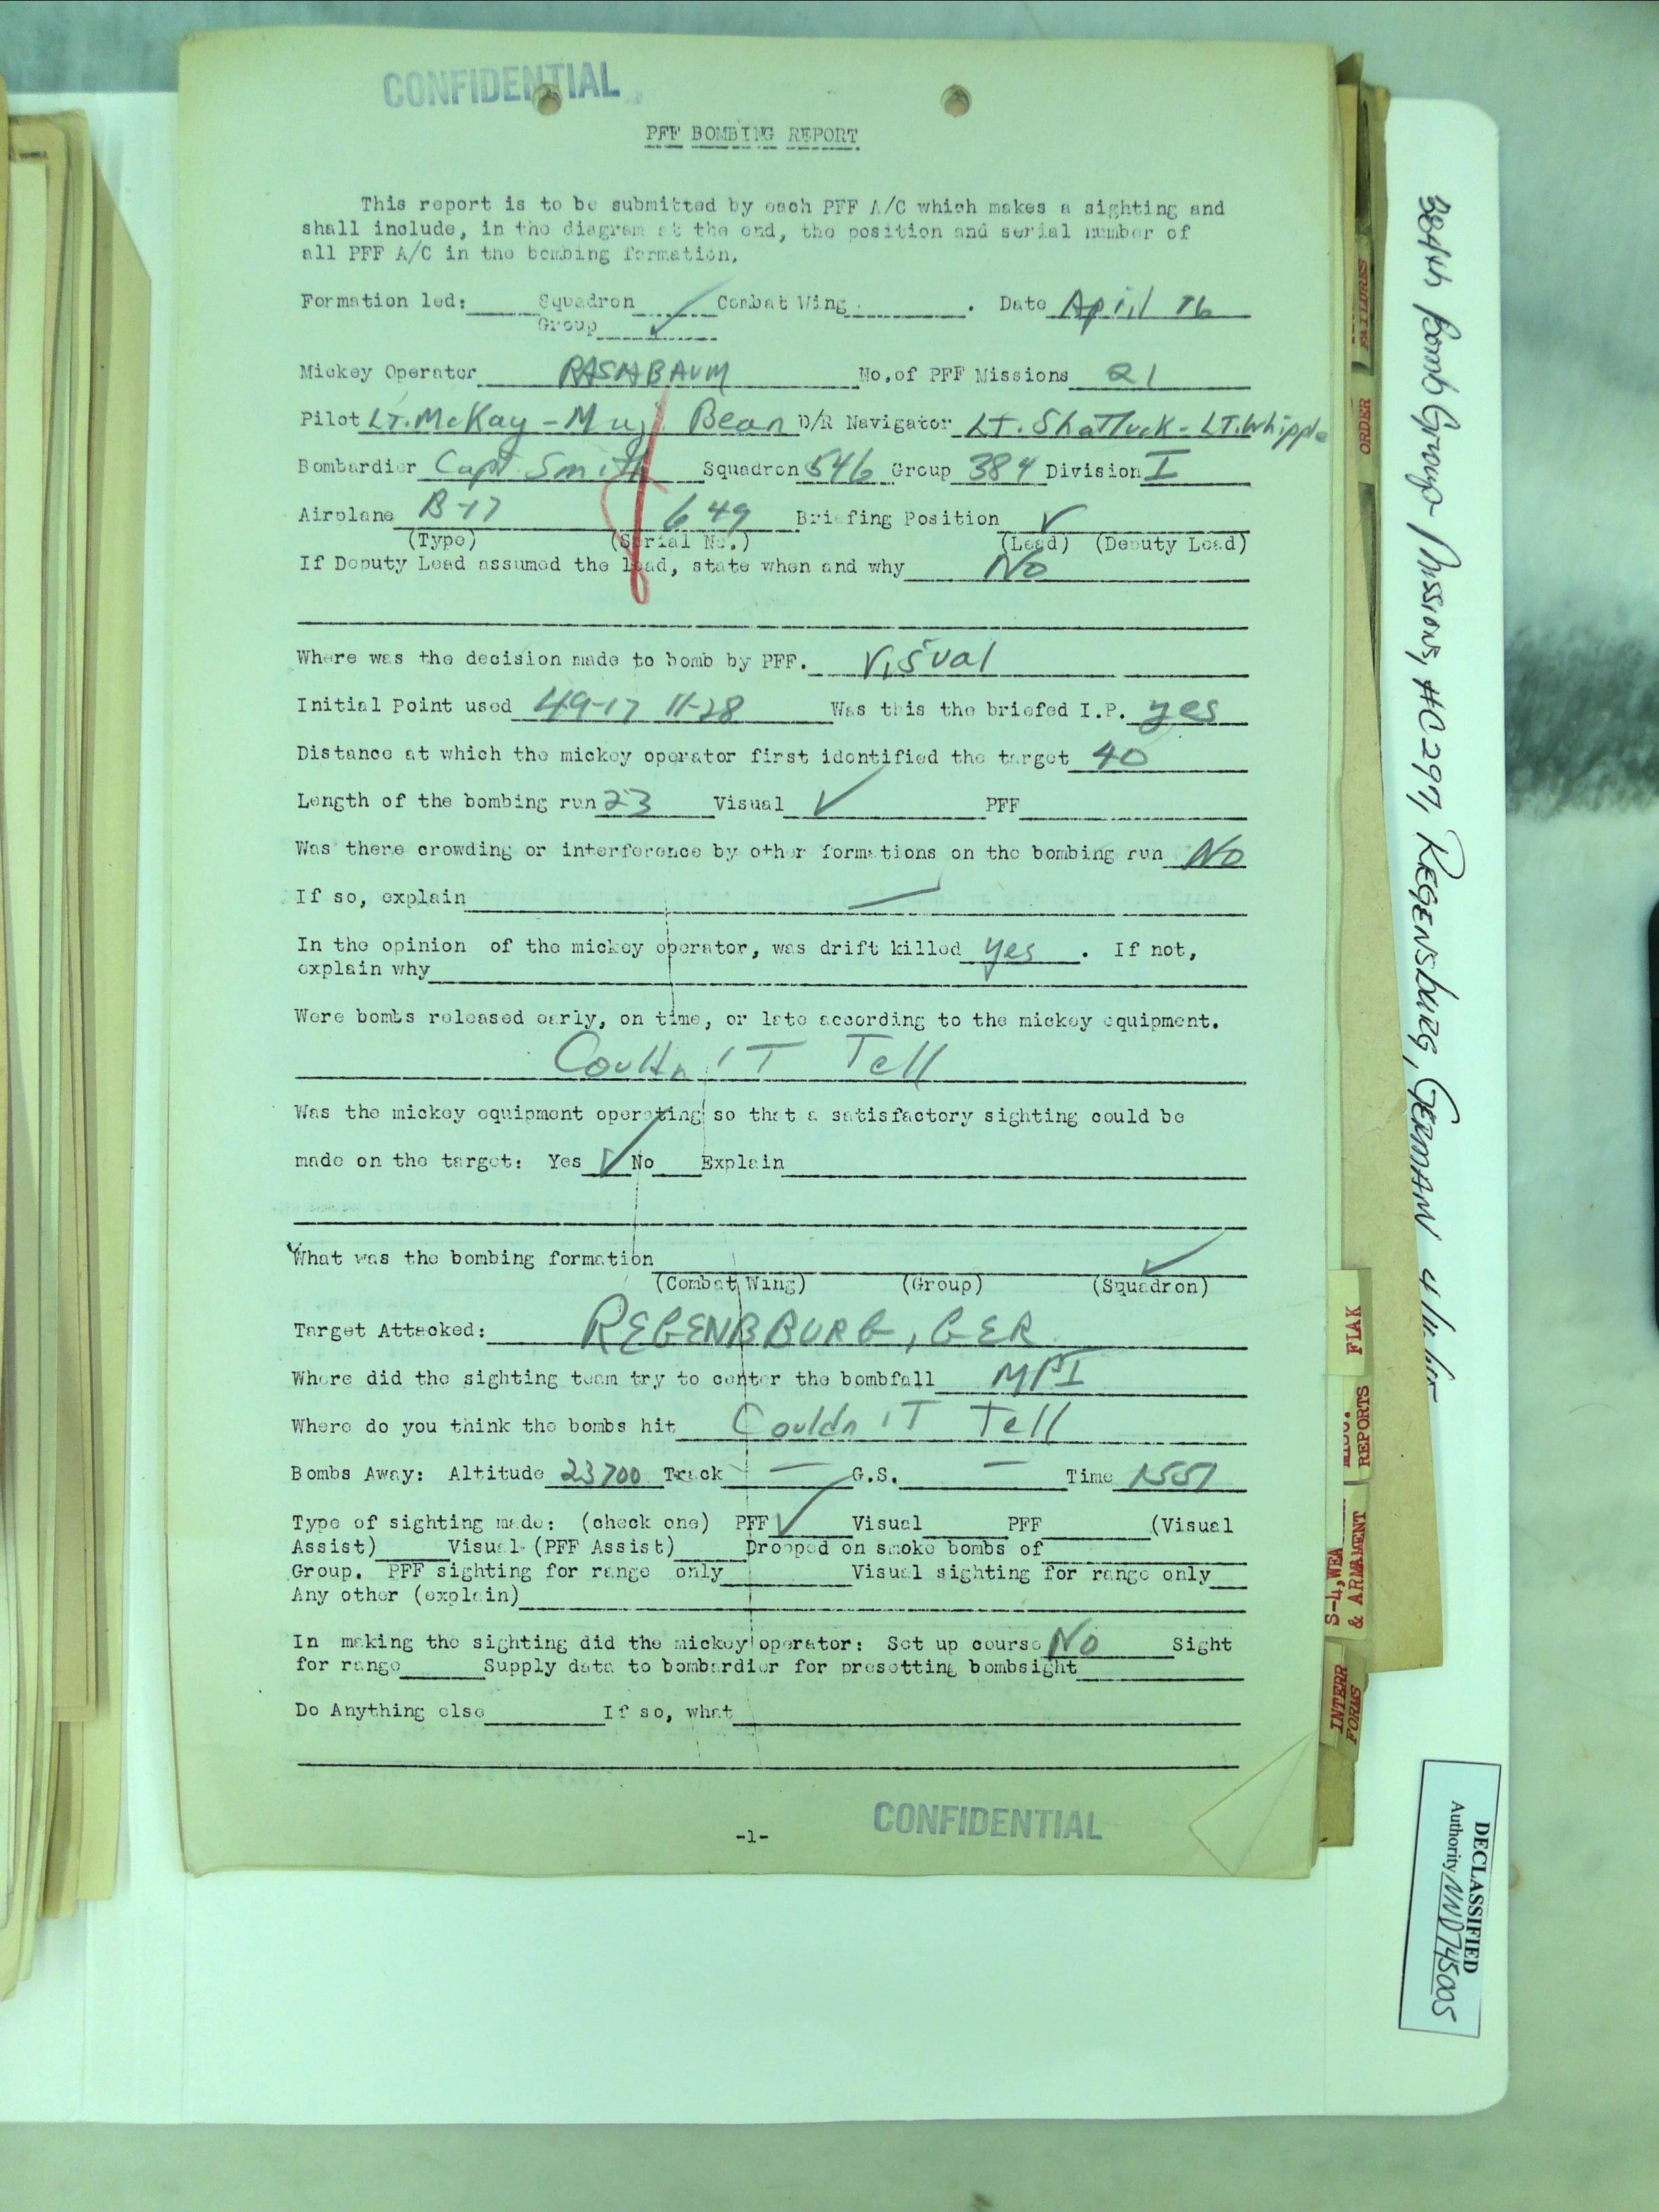 CONFIDENTIAL
PFF BOMBING REPORT
This report is to be submitted by each PFF A/C which makes a sighting and
shall include, in the diagram at the end, the position and serial number of
all PFF A/C in the bombing formation.
Formation led:____Squadron____✓Combat Wing____. Date April 16
Group____
Mickey Operator RASHBAUM No.of PFF Missions 21
Pilot Lt. McKay - Maj. Bean D/R Navigator Lt. Shattuck - LT. Whipple
Bombardier Capt Smith Squadron 546 Group 384 Division I
Airplane B-17 649 Briefing Position ✓
(Type) (Serial No.) (Lead) (Deputy Lead)
If Deputy Lead assumed the lead, state when and why No
Where was the decision made to bomb by PFF. Visual
Initial Point used 49-17 11-28 Was this the briefed I.P. yes
Distance at which the mickey operator first identified the target 40
Length of the bombing run 23 Visual ✓ PFF
Was there crowding or interference by other formations on the bombing run No
If so, explain —
In the opinion of the mickey operator, was drift killed yes . If not,
explain why
Were bombs released early, on time, or late according to the mickey equipment.
Couldn'T Tell
Was the mickey equipment operating so that a satisfactory sighting could be
made on the target: Yes ✓ No Explain
What was the bombing formation ✓
(Combat Wing) (Group) (Squadron)
Target Attacked: REGENBBURG, GER
Where did the sighting team try to center the bombfall MPI
Where do you think the bombs hit Couldn'T Tell
Bombs Away: Altitude 23700 Track — G.S. — Time 1551
Type of sighting made: (check one) PFF ✓ Visual PFF (Visual
Assist) Visual (PFF Assist) Dropped on smoke bombs of
Group. PFF sighting for range only Visual sighting for range only
Any other (explain)
In making the sighting did the mickey operator: Set up course No Sight
for range Supply data to bombardier for presetting bombsight
Do Anything else If so, what
-1-
CONFIDENTIAL
FAILURES
ORDER
FLAK
REPORTS
S-4, WEA
& ARMAMENT
INTERR
FORMS
384th Bomb Group Missions, #C 297, REGENSBURG, GERMAN
DECLASSIFIED
Authority NND745005